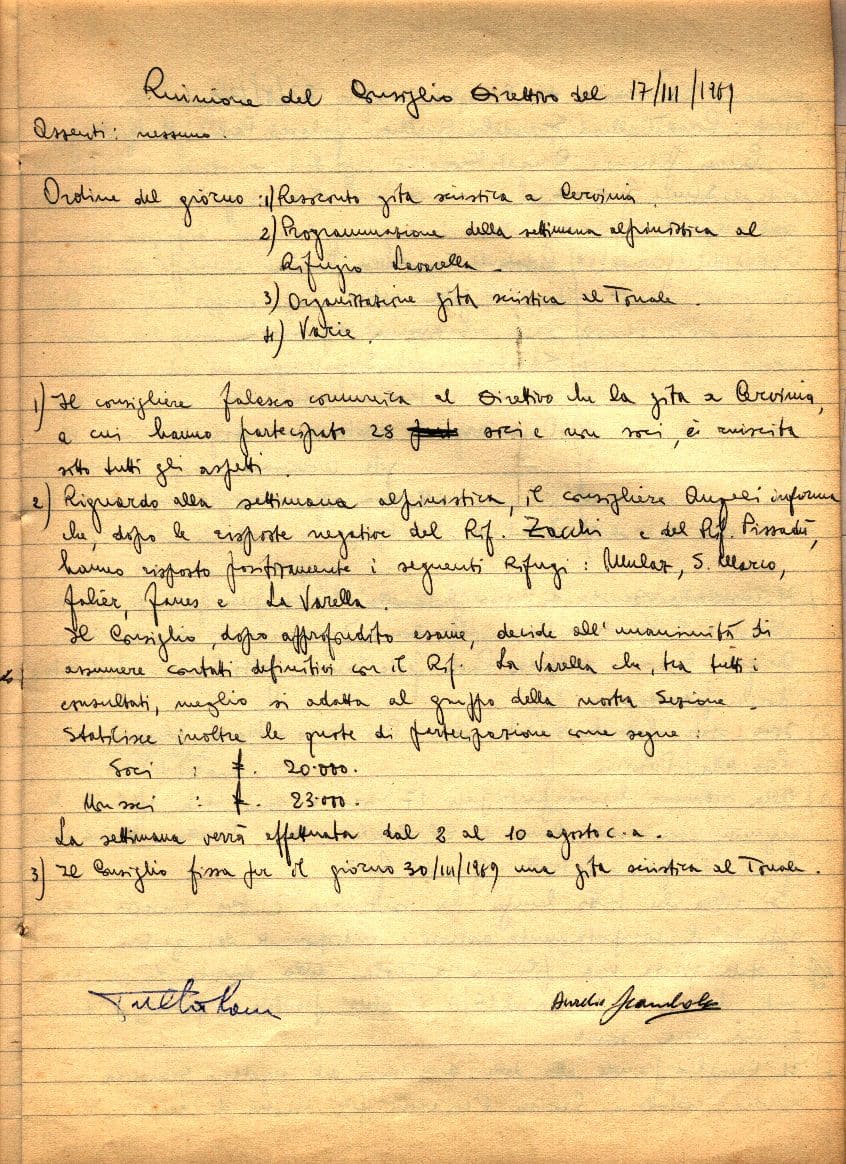 Riunione del Consiglio Direttivo del 17/III/1969
Assenti: nessuno.
Ordine del giorno: 1) Resoconto gita sciistica a Cervinia
2) Programmazione della settimana alpinistica al
Rifugio Lavarella.
3) Organizzazione gita sciistica al Tonale.
4) Varie.
1) Il consigliere Falasco comunica al Direttivo che la gita a Cervinia,
a cui hanno partecipato 28 soci e non soci, è riuscita
sotto tutti gli aspetti.
2) Riguardo alla settimana alpinistica, il consigliere Angeli informa
che, dopo le risposte negative del Rif. Zacchi e del Rif. Pissadù,
hanno risposto positivamente i seguenti Rifugi: Mulaz, S. Marco,
Falier, Fanes e La Varella.
Il Consiglio, dopo approfondito esame, decide all'unanimità di
assumere contatti definitivi con il Rif. La Varella che, tra tutti i
consultati, meglio si adatta al gruppo della nostra Sezione.
Stabilisce inoltre le quote di partecipazione come segue:
Soci : £. 20.000.
Non soci : £. 23.000.
La settimana verrà effettuata dal 2 al 10 agosto c.a.
3) Il Consiglio fissa per il giorno 30/III/1969 una gita sciistica al Tonale.
Aurelio